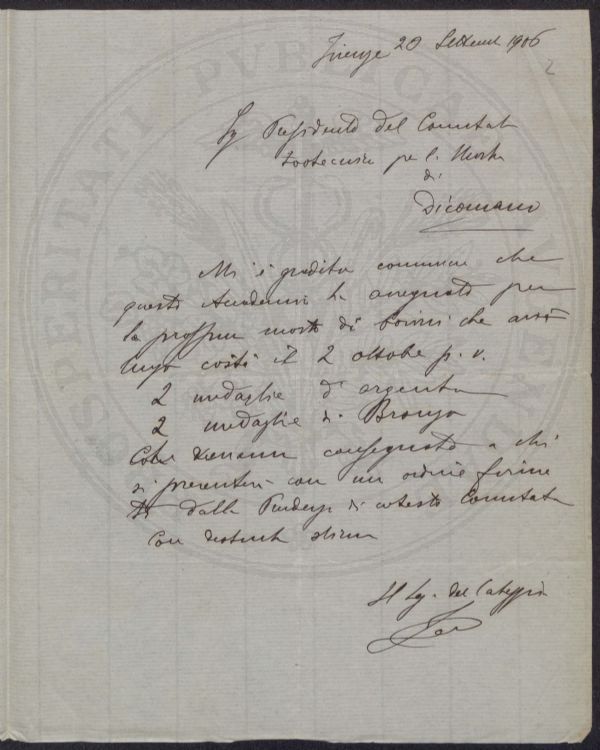 Firenze 20 Settemb 1906
2
Sig Presidente del Comitat
zootecnico per la Mostra
di
Dicomano
Mi è gradito comunicare che
questa Accademia ha assegnato per
la prossima mostra di bovini che avrà
luogo costì il 2 ottobre p. v.
2 medaglie d'argento
2 medaglie di Bronzo
che verranno consegnate a chi
si presenterà con un ordine firma
to dalla Presidenza di cotesto Comitato
Con distinta stima
Il Sg. del
PROSPERITATI PUBLICAE AUGENDAE